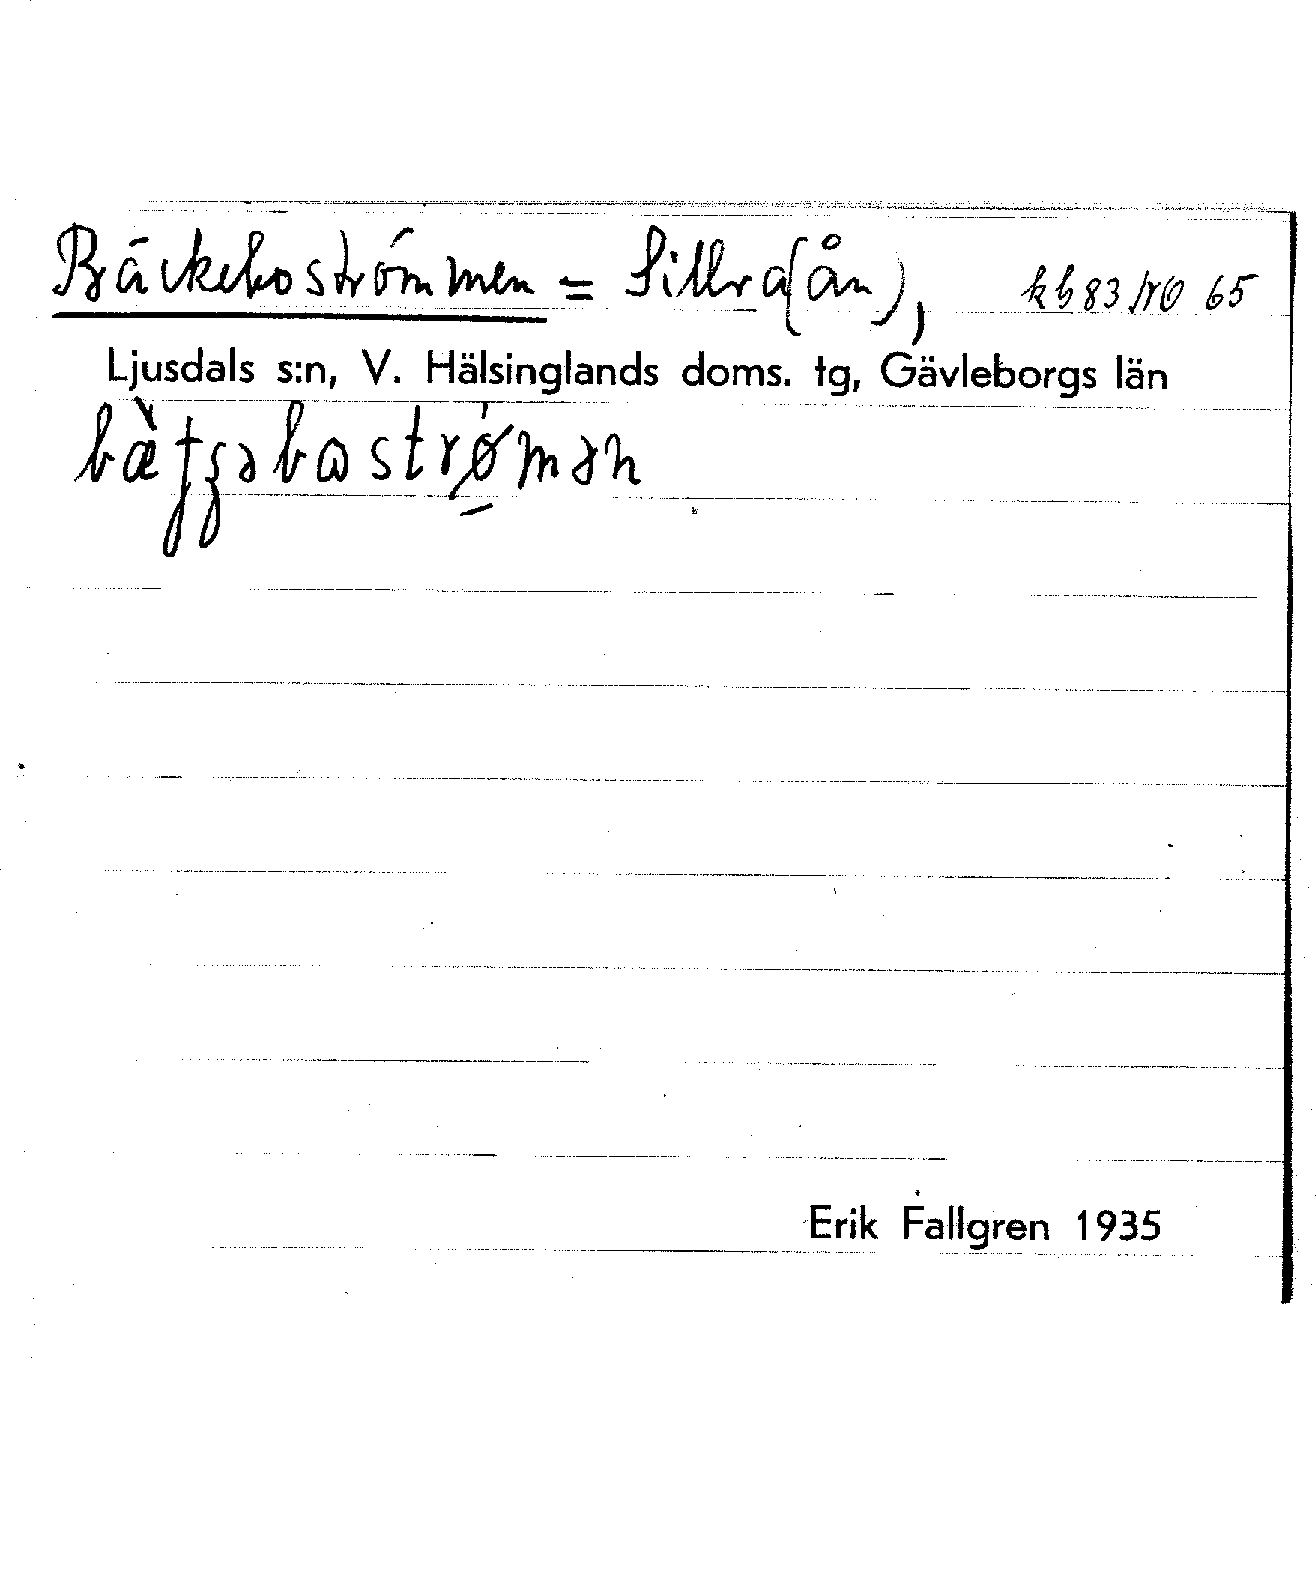 Bäckeboströmmen = Sillra(ån), kb 83 NO 65
Ljusdals s:n, V. Hälsinglands doms. tg, Gävleborgs län
Erik Fallgren 1935